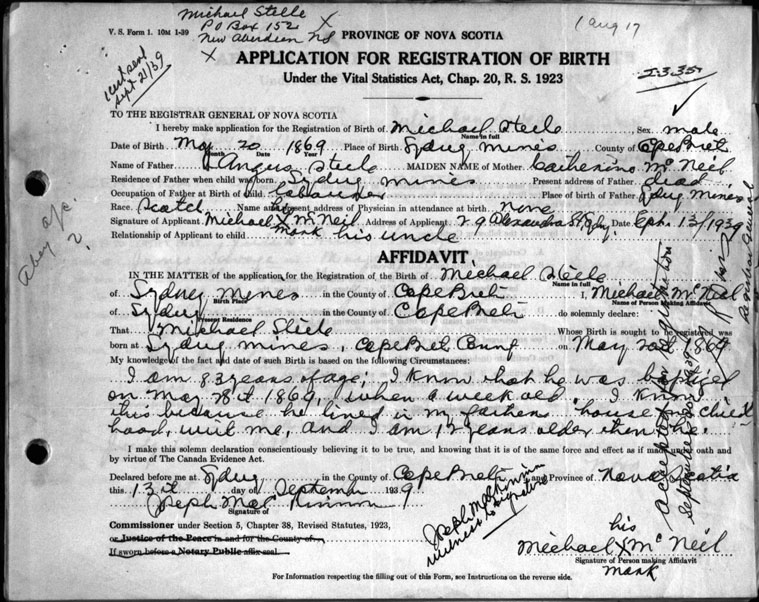 Michael Steele
PO Box 152
New Aberdeen NS
V. S. Form 1. 10M 1-39
PROVINCE OF NOVA SCOTIA
1 Aug 17
APPLICATION FOR REGISTRATION OF BIRTH
Under the Vital Statistics Act, Chap. 20, R. S. 1923
Sept 21/39
TO THE REGISTRAR GENERAL OF NOVA SCOTIA
I hereby make application for the Registration of Birth of Michael Steele Sex male
Name in full
Date of Birth May 20 1869 Place of Birth Sydney Mines County of Cape Breton
Month Date Year
Name of Father Angus Steele MAIDEN NAME of Mother Catherine McNeil
Residence of Father when child was born Sydney Mines Present address of Father dead
Occupation of Father at Birth of child Place of birth of Father Sydney Mines
Race Scotch Name and present address of Physician in attendance at birth none
Signature of Applicant Michael X McNeil Address of Applicant 29 Alexandra St Sydney Date Sept. 13/1939
his
mark
Relationship of Applicant to child his uncle
AFFIDAVIT
IN THE MATTER of the application for the Registration of the Birth of Michael Steele
Name in full
of Sydney Mines in the County of Cape Breton I, Michael McNeil
Birth Place Name of Person Making Affidavit
of Sydney in the County of Cape Breton do solemnly declare:
Present Residence
That Michael Steele Whose Birth is sought to be registered was
born at Sydney Mines, Cape Bret County on May 20th 1869
My knowledge of the fact and date of such Birth is based on the following Circumstances:
I am 83 years of age; I know that he was baptized
on May 28th 1869, when a week old. I know
this because he lived in my fathers house in child
hood, with me, and I am 12 years older then he.
I make this solemn declaration conscientiously believing it to be true, and knowing that it is of the same force and effect as if made under oath and
by virtue of The Canada Evidence Act.
Declared before me at Sydney in the County of Cape Breton and Province of Nova Scotia
this 13th day of September 1939.
Joseph MacKinnon
Signature of
Commissioner under Section 5, Chapter 38, Revised Statutes, 1923,
or Justice of the Peace in and for the County of
If sworn before a Notary Public affix seal.
Joseph MacKinnon
witness to signature
his
Michael X McNeil
Signature of Person making Affidavit
mark
For Information respecting the filling out of this Form, see Instructions on the reverse side.
accepted for registration
Registrar General